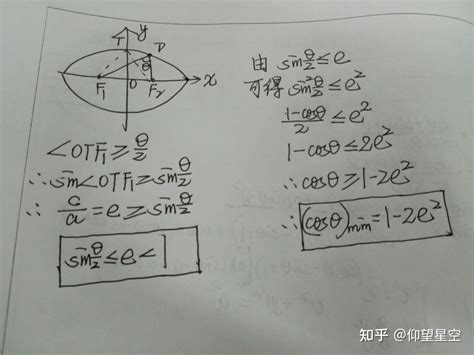 y
T
P
θ
F₁
O
F₂
x
∠OTF₁≥θ/2
∴sin∠OTF₁≥sinθ/2
∴c/a=e≥sinθ/2
sinθ/2≤e<1
由sinθ/2≤e
可得sin²θ/2≤e²
(1-cosθ)/2≤e²
1-cosθ≤2e²
∴cosθ≥1-2e²
∴(cosθ)min=1-2e²
知乎 @仰望星空